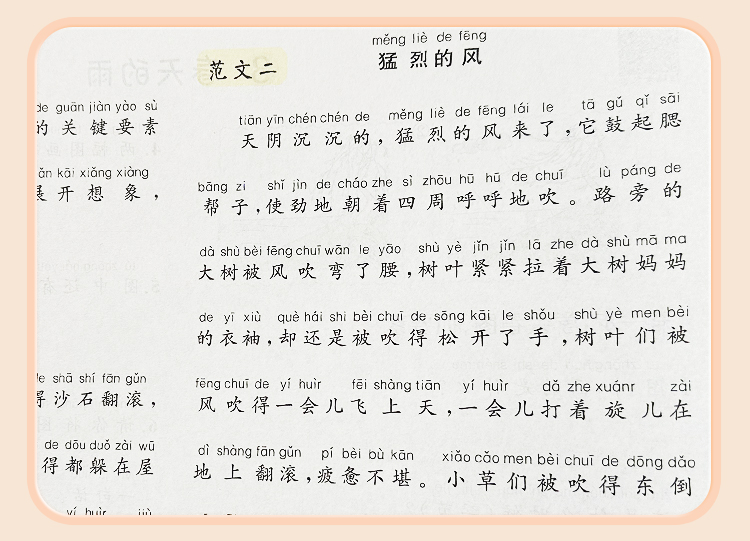 měng liè de fēng
范文二 猛烈的风
tiān yīn chén chén de měng liè de fēng lái le tā gǔ qǐ sāi
天阴沉沉的，猛烈的风来了，它鼓起腮
bāng zi shǐ jìn de cháo zhe sì zhōu hū hū de chuī lù páng de
帮子，使劲地朝着四周呼呼地吹。路旁的
dà shù bèi fēng chuī wān le yāo shù yè jǐn jǐn lā zhe dà shù mā ma
大树被风吹弯了腰，树叶紧紧拉着大树妈妈
de yī xiù què hái shi bèi chuī de sōng kāi le shǒu shù yè men bèi
的衣袖，却还是被吹得松开了手，树叶们被
fēng chuī de yí huìr fēi shàng tiān yí huìr dǎ zhe xuánr zài
风吹得一会儿飞上天，一会儿打着旋儿在
dì shàng fān gǔn pí bèi bù kān xiǎo cǎo men bèi chuī de dōng dǎo
地上翻滚，疲惫不堪。小草们被吹得东倒
de guān jiàn yào sù
的关键要素
kāi xiǎng xiàng
展开想象，
de shā shí fān gǔn
得沙石翻滚，
de dōu duǒ zài wū
得都躲在屋
yí huìr jiù